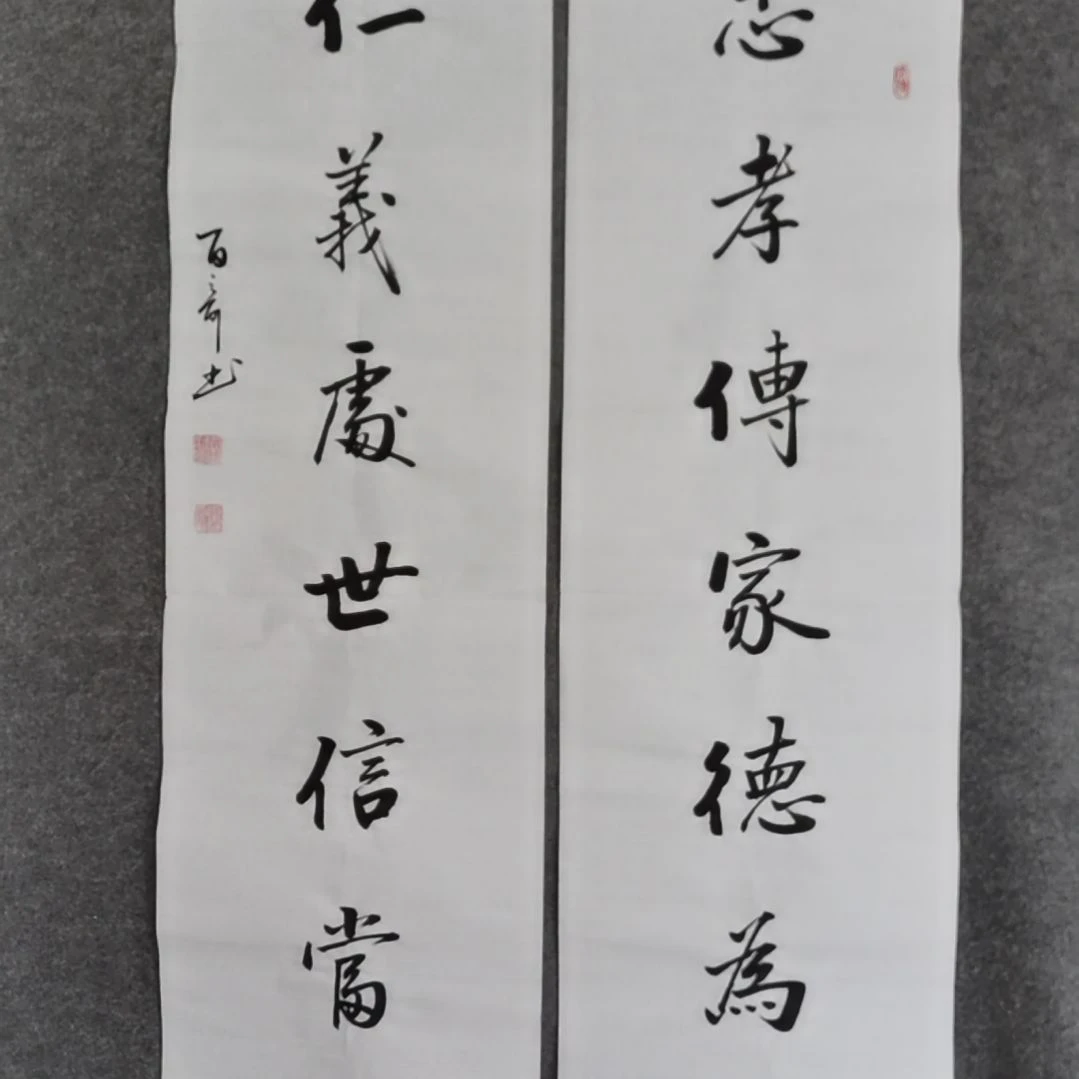 忠孝傳家德為
仁義處世信當
百奇书